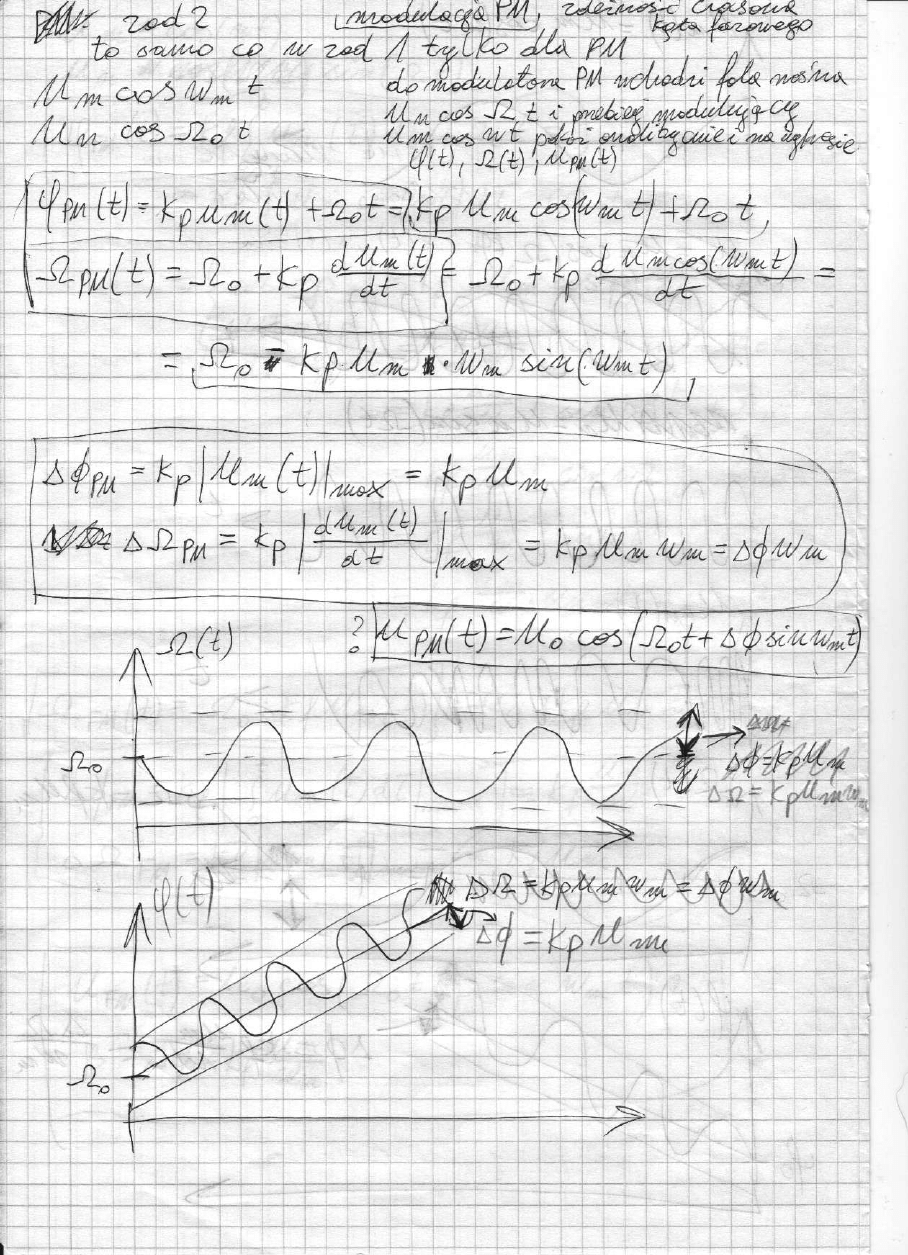 zad 2 modulacja PM, zależność czasowa
kąta fazowego
to samo co w zad 1 tylko dla PM
U_m cos ω_m t
U_n cos Ω_0 t
do modulatora PM wchodzi fala nośna
U_n cos Ω t i przebieg modulujący
U_m cos ωt analitycznie i na
φ(t), Ω(t), u_PM(t)
φ_PM(t) = k_p u_m(t) + Ω_0 t = k_p U_m cos(ω_m t) + Ω_0 t
Ω_PM(t) = Ω_0 + k_p du_m(t)/dt = Ω_0 + k_p dU_m cos(ω_m t)/dt =
= Ω_0 - k_p U_m · ω_m sin(ω_m t)
Δφ_PM = k_p |u_m(t)|_max = k_p U_m
ΔΩ_PM = k_p |du_m(t)/dt|_max = k_p U_m ω_m = Δφ ω_m
? u_PM(t) = U_0 cos(Ω_0 t + Δφ sin ω_m t)
Ω(t)
Ω_0
Δφ = k_p U_m
ΔΩ = k_p U_m ω_m
φ(t)
ΔΩ = k_p U_m ω_m = Δφ ω_m
Δφ = k_p U_m
Ω_0